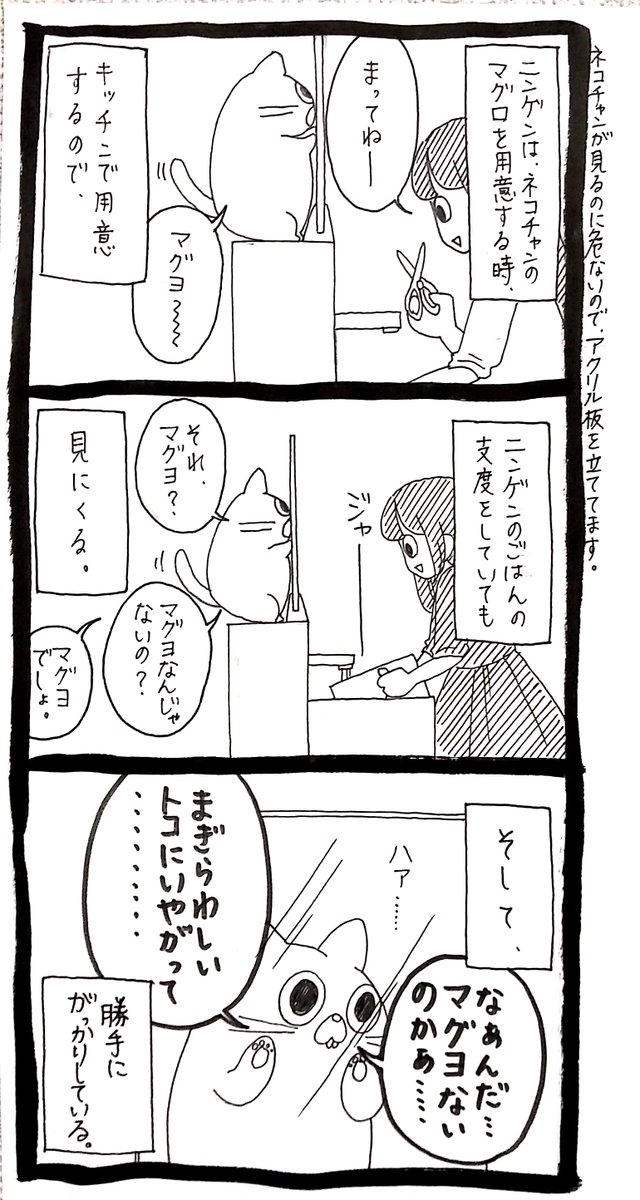 ネコチャンが見るのに危ないので、アクリル板を立ててます。
ニンゲンは、ネコチャンの
マグロを用意する時、
まってねー
キッチンで用意
するので、
マグヨ〜〜〜
ニンゲンのごはんの
支度をしていても
ジャー
それ、
マグヨ？
見にくる。
マグヨなんじゃ
ないの？
マグヨ
でしょ。
そして、
ハァ……
なぁんだ…
マグヨない
のかぁ……
まぎらわしい
トコにいやがって
………
勝手に
がっかりしている。